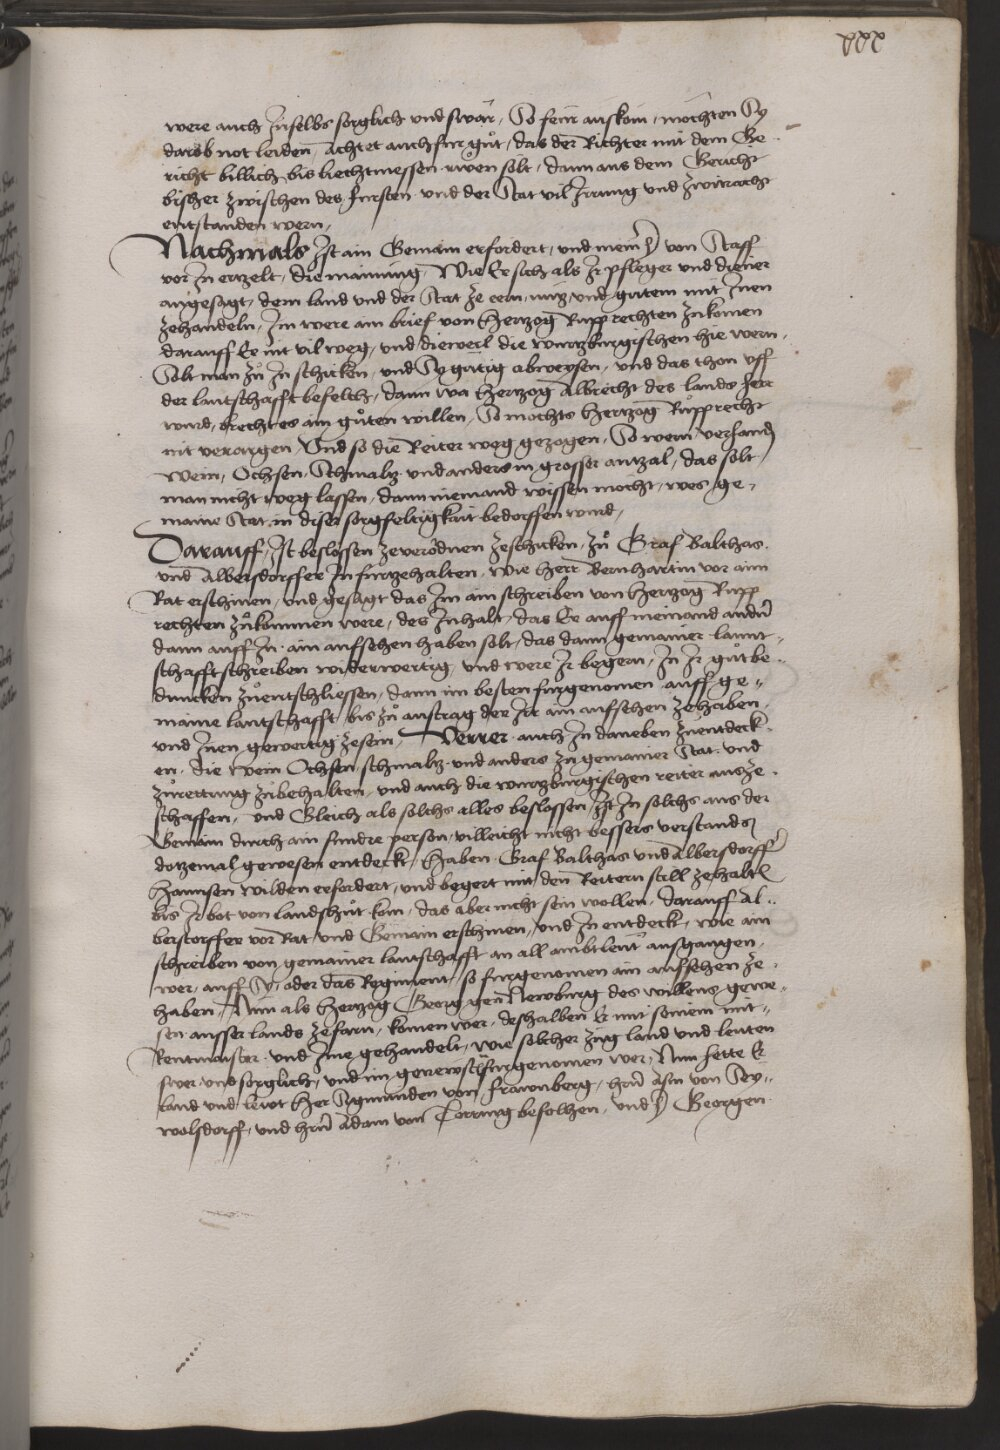 xxx
were auch Inselbs sorglich und swär, So feur ausköm, möchten Sy
darob not leiden, achtet auch fur gůt, das der Richter mit dem Ge
richt billich bis liechtmessen rwen solt, dann aus dem Gericht
bisher zwischen des fursten und der Stat vil Irrung und zwitracht
entstanden wern,
Nachmals Ist ain Gemain erfordert, und mein h von Stauff
vor In ertzelt, die mainung, Wie Er sich als Ir pfleger und diener
angesagt, dem land und der Stat ze eern, nutz und gutem mit Inen
zehandeln, Im were ain brief von Hertzog Rupprechten zukomen
darauff Er nit vil weg, und dieweil die wurtzburgischen hie wern,
Solt man zů In schicken, und Sy gütig abweysen, und das thon uff
der lantschafft befelch, dann wa Hertzog Albrecht des lands herr
wurd, brecht es ain gůten willen, So mochts Hertzog Růpprecht
nit verargen, Und so die Reiter weg gezogen, So wern verhand
wein, Ochsen, Schmaltz und anders in grosser antzal, das solt
man nicht weg lassen, dann niemand wissen mocht, wes ge,
maine Stat in diser sorgfeltigkait bedorffen wurd,
Darauff, Ist beslossen zeverordnen zeschicken, zů Graf Balthas.
und Albersdorffer In furtzehalten, wie herr Bernhartin vor aim
Rat erschinen, und gesagt das Im ain schreiben von Hertzog Rupp
rechten zůkommen were, des Inhalt, das Er auff niemand andern
dann auff In ain auffsehen haben solt, das dann gemainer lannt,,
schafft schreiben widerwertig, und were Ir begern, In Ir gůt be,,
duncken zůentschliessen, dann im besten furgenomen, auff ge,,
maine lantschafft, bis zů austrag der Irr ain aufsehen zehaben,
und Inen gewertig zesein, Verrer auch In daneben zuentdeck
en, die wein Ochsen schmaltz und anders zu gemainer Stat und
zůrettung zubehalten, und auch die wurtzburgischen reiter ausze,
schaffen, und Gleich als solchs alles beslossen, Ist In solchs aus der
Gemain durch ain sundre person, villeicht nicht bessers verstands
dotzemal gewesen entdeckt, Haben Graf Balthas und Albersdorffer
Hannsen wilden erfordert, und begert mit den Reitern still zehalten
bis Ir bot von landshůt kom, das aber nicht sein wollen, darauff Al,,
berstorffer vor Rat und Gemain erschinen, und In entdeckt, wie ain
schreiben von gemainer lantschafft an all ambtleut ausgangen,
wer, auff Sy, oder das Regiment, so furgenomen ain aufsehen ze,
haben, Nun als Hertzog Georg gen Newburg des willens gewe,,
sen ausser lands zefarn, komen wer, deshalben Er mit seinem mit,,
Rentmaister und Ime gehandelt, wie solcher zug land und leuten
swer und sorglich, und im gerewst furgenomen wer, Nun hette Er
land und lewt Her Sigmunden von Frawnberg, hern Asm von Sey,,
wolsdorff, und hern Adam von Torring befolhen, und h Georgen